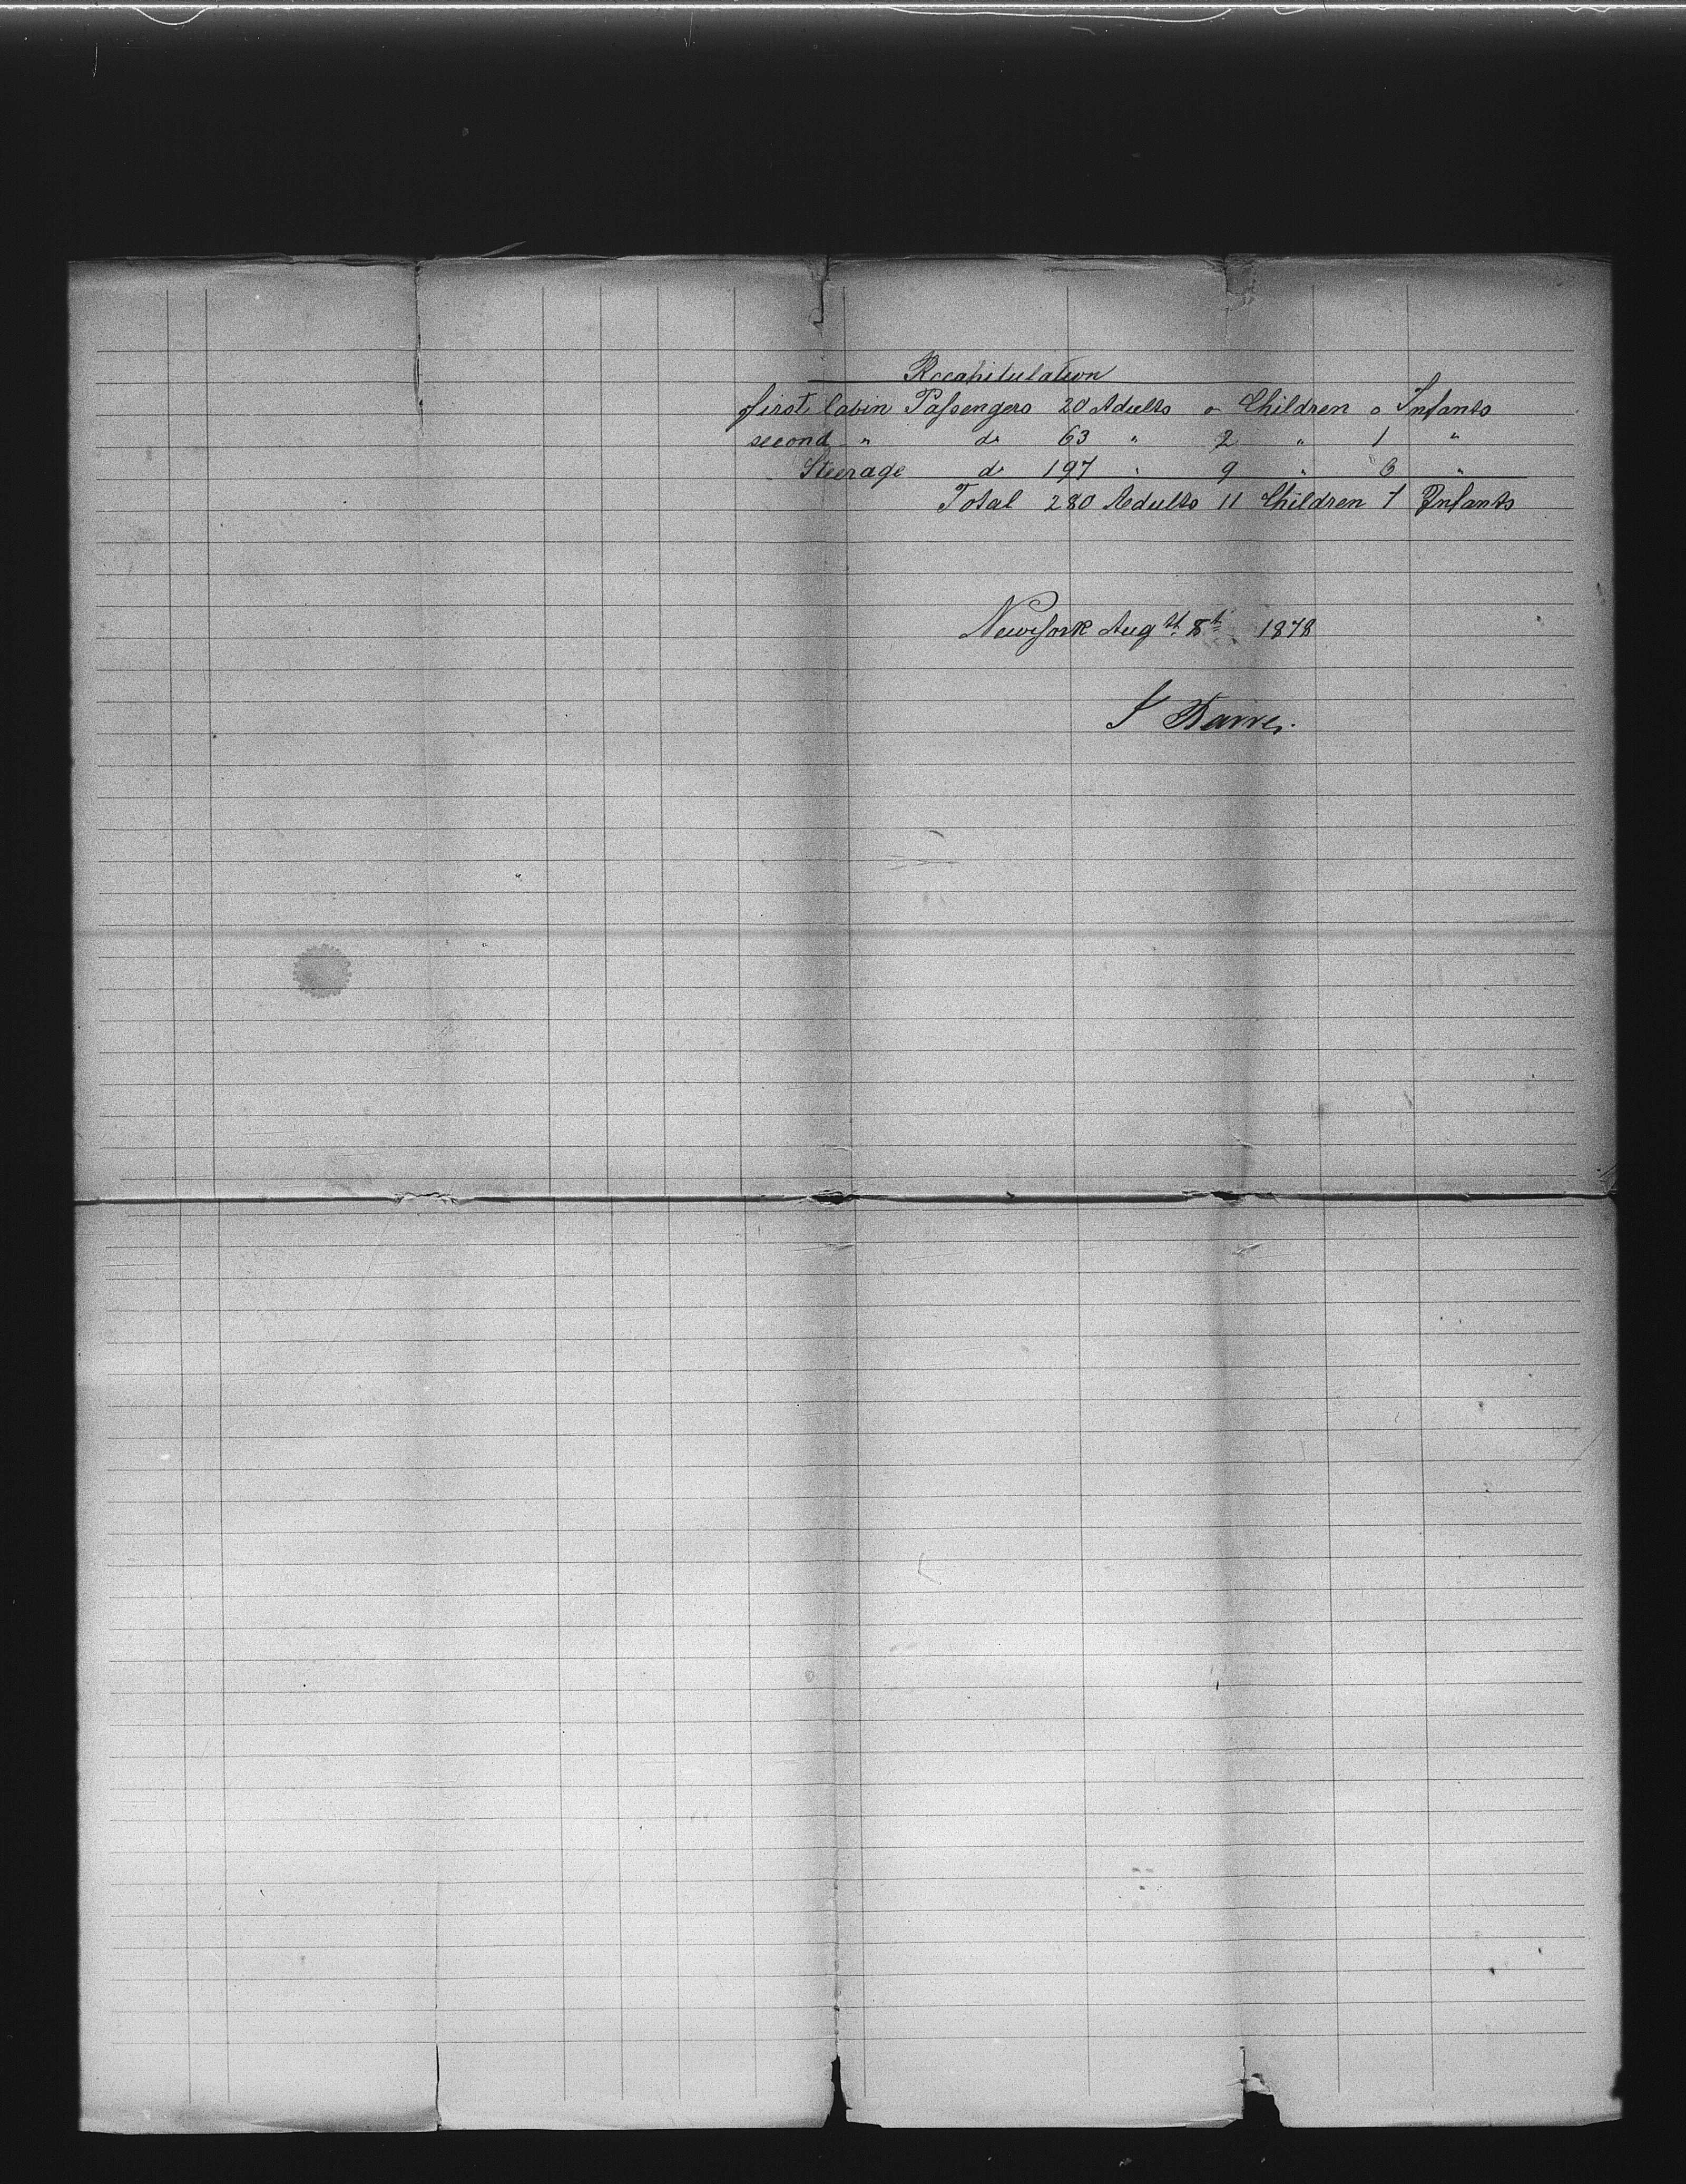 Recapitulation
first Cabin Passengers 20 Adults o Children o Infants
second " do 63 " 2 " 1 "
Steerage do 197 " 9 " 6 "
Total 280 Adults 11 Children 7 Infants
NewYork Augst 8th 1878